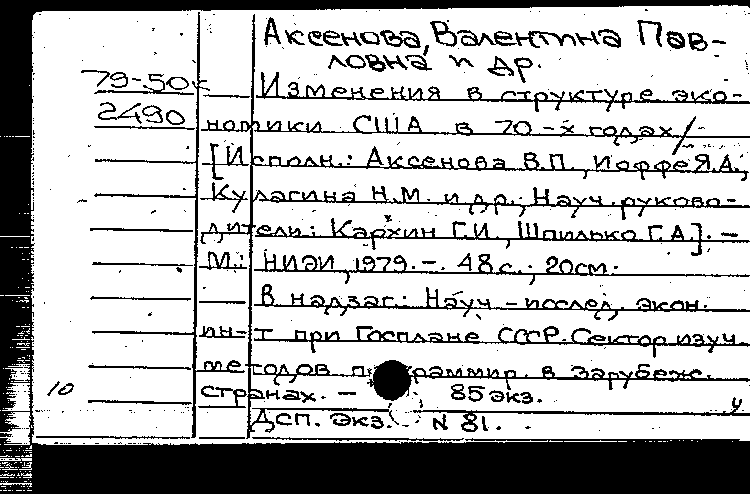 Аксенова, Валентина Пав-
ловна и др.
79-50к
Изменения в структуре эко-
2490
номики США в 70-х годах/
[Исполн.: Аксенова В.П., Иоффе Я.А.,
Кулагина Н.М. и др.; Науч. руково-
дители: Кархин Г.И., Шпилько Г.А]. —
М.: НИЭИ, 1979. — 48 с.; 20см.
В надзаг.: Науч.-исслед. экон.
ин-т при Госплане СССР. Сектор изуч.
методов программир. в зарубеж.
странах. — 85 экз.
10
Дсп. Экз. N 81.